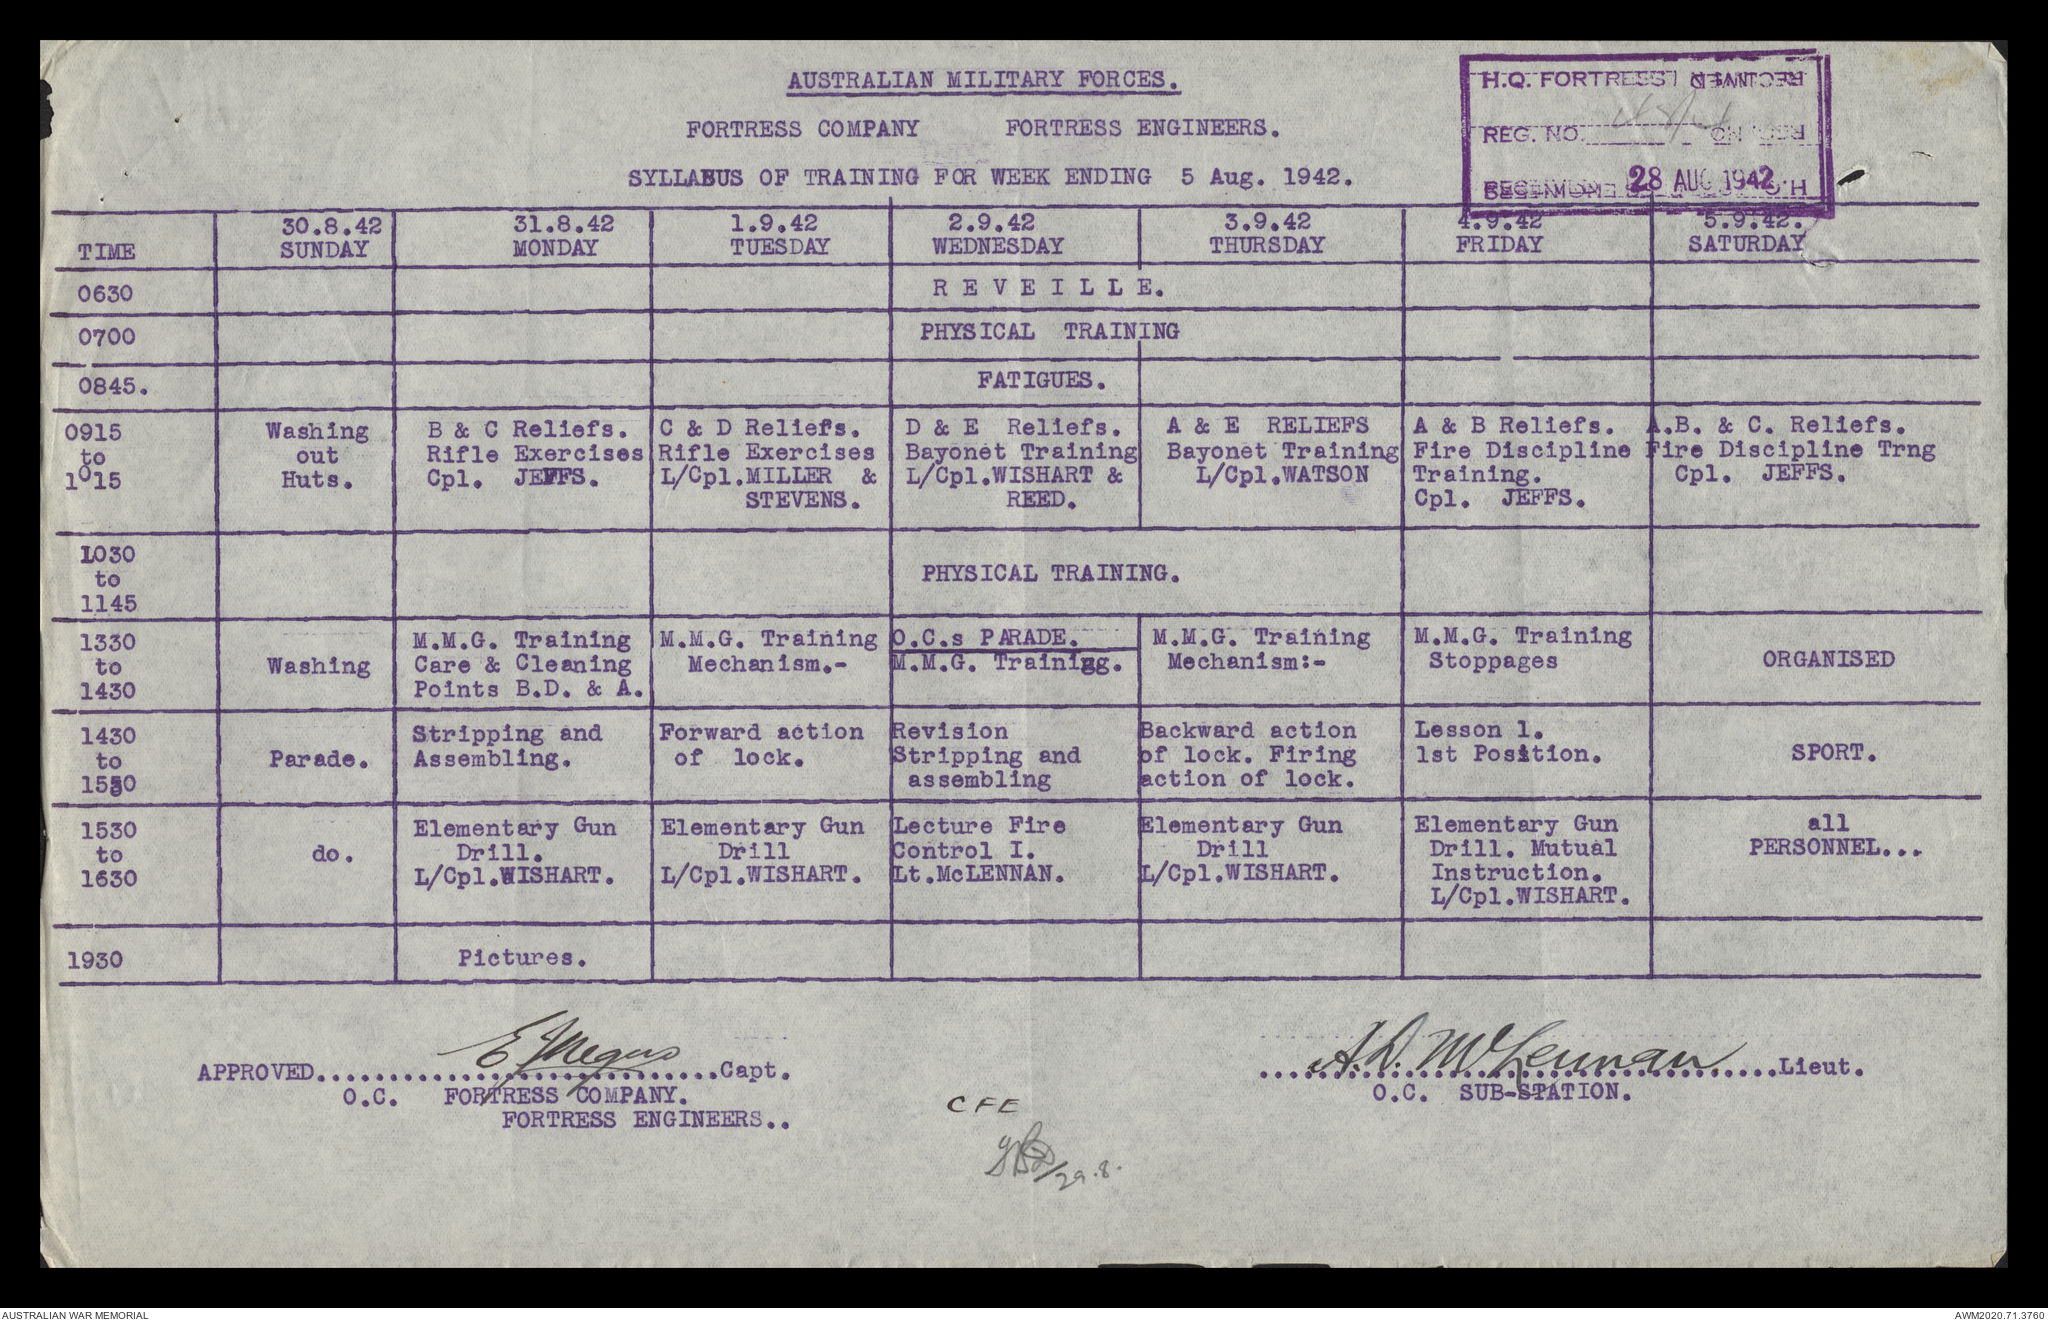 AUSTRALIAN MILITARY FORCES.
FORTRESS COMPANY FORTRESS ENGINEERS.
SYLLABUS OF TRAINING FOR WEEK ENDING 5 Aug. 1942.
H.Q. FORTRESS
REG. NO.
28 AUG 1942
30.8.42 31.8.42 1.9.42 2.9.42 3.9.42 4.9.42 5.9.42.
TIME SUNDAY MONDAY TUESDAY WEDNESDAY THURSDAY FRIDAY SATURDAY
0630 R E V E I L L E.
0700 PHYSICAL TRAINING
0845. FATIGUES.
0915 Washing B & C Reliefs. C & D Reliefs. D & E Reliefs. A & E RELIEFS A & B Reliefs. A.B. & C. Reliefs.
to out Rifle Exercises Rifle Exercises Bayonet Training Bayonet Training Fire Discipline Fire Discipline Trng
1015 Huts. Cpl. JEFFS. L/Cpl.MILLER & L/Cpl.WISHART & L/Cpl.WATSON Training. Cpl. JEFFS.
STEVENS. REED. Cpl. JEFFS.
1030
to PHYSICAL TRAINING.
1145
1330 M.M.G. Training M.M.G. Training O.C.s PARADE. M.M.G. Training M.M.G. Training
to Washing Care & Cleaning Mechanism.- M.M.G. Training. Mechanism:- Stoppages ORGANISED
1430 Points B.D. & A.
1430 Stripping and Forward action Revision Backward action Lesson 1.
to Parade. Assembling. of lock. Stripping and of lock. Firing 1st Position. SPORT.
1530 assembling action of lock.
1530 Elementary Gun Elementary Gun Lecture Fire Elementary Gun Elementary Gun all
to do. Drill. Drill Control I. Drill Drill. Mutual PERSONNEL...
1630 L/Cpl.WISHART. L/Cpl.WISHART. Lt.McLENNAN. L/Cpl.WISHART. Instruction.
L/Cpl.WISHART.
1930 Pictures.
APPROVED............................Capt.
O.C. FORTRESS COMPANY.
FORTRESS ENGINEERS..
A.D. McLennan Lieut.
O.C. SUB-STATION.
CFE
29.8.
AUSTRALIAN WAR MEMORIAL
AWM2020.71.3760